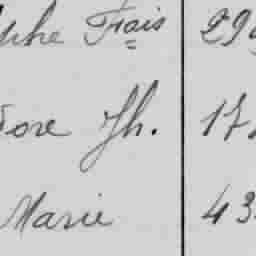 phe Frais 29
dore Jh. 17
Marie 43